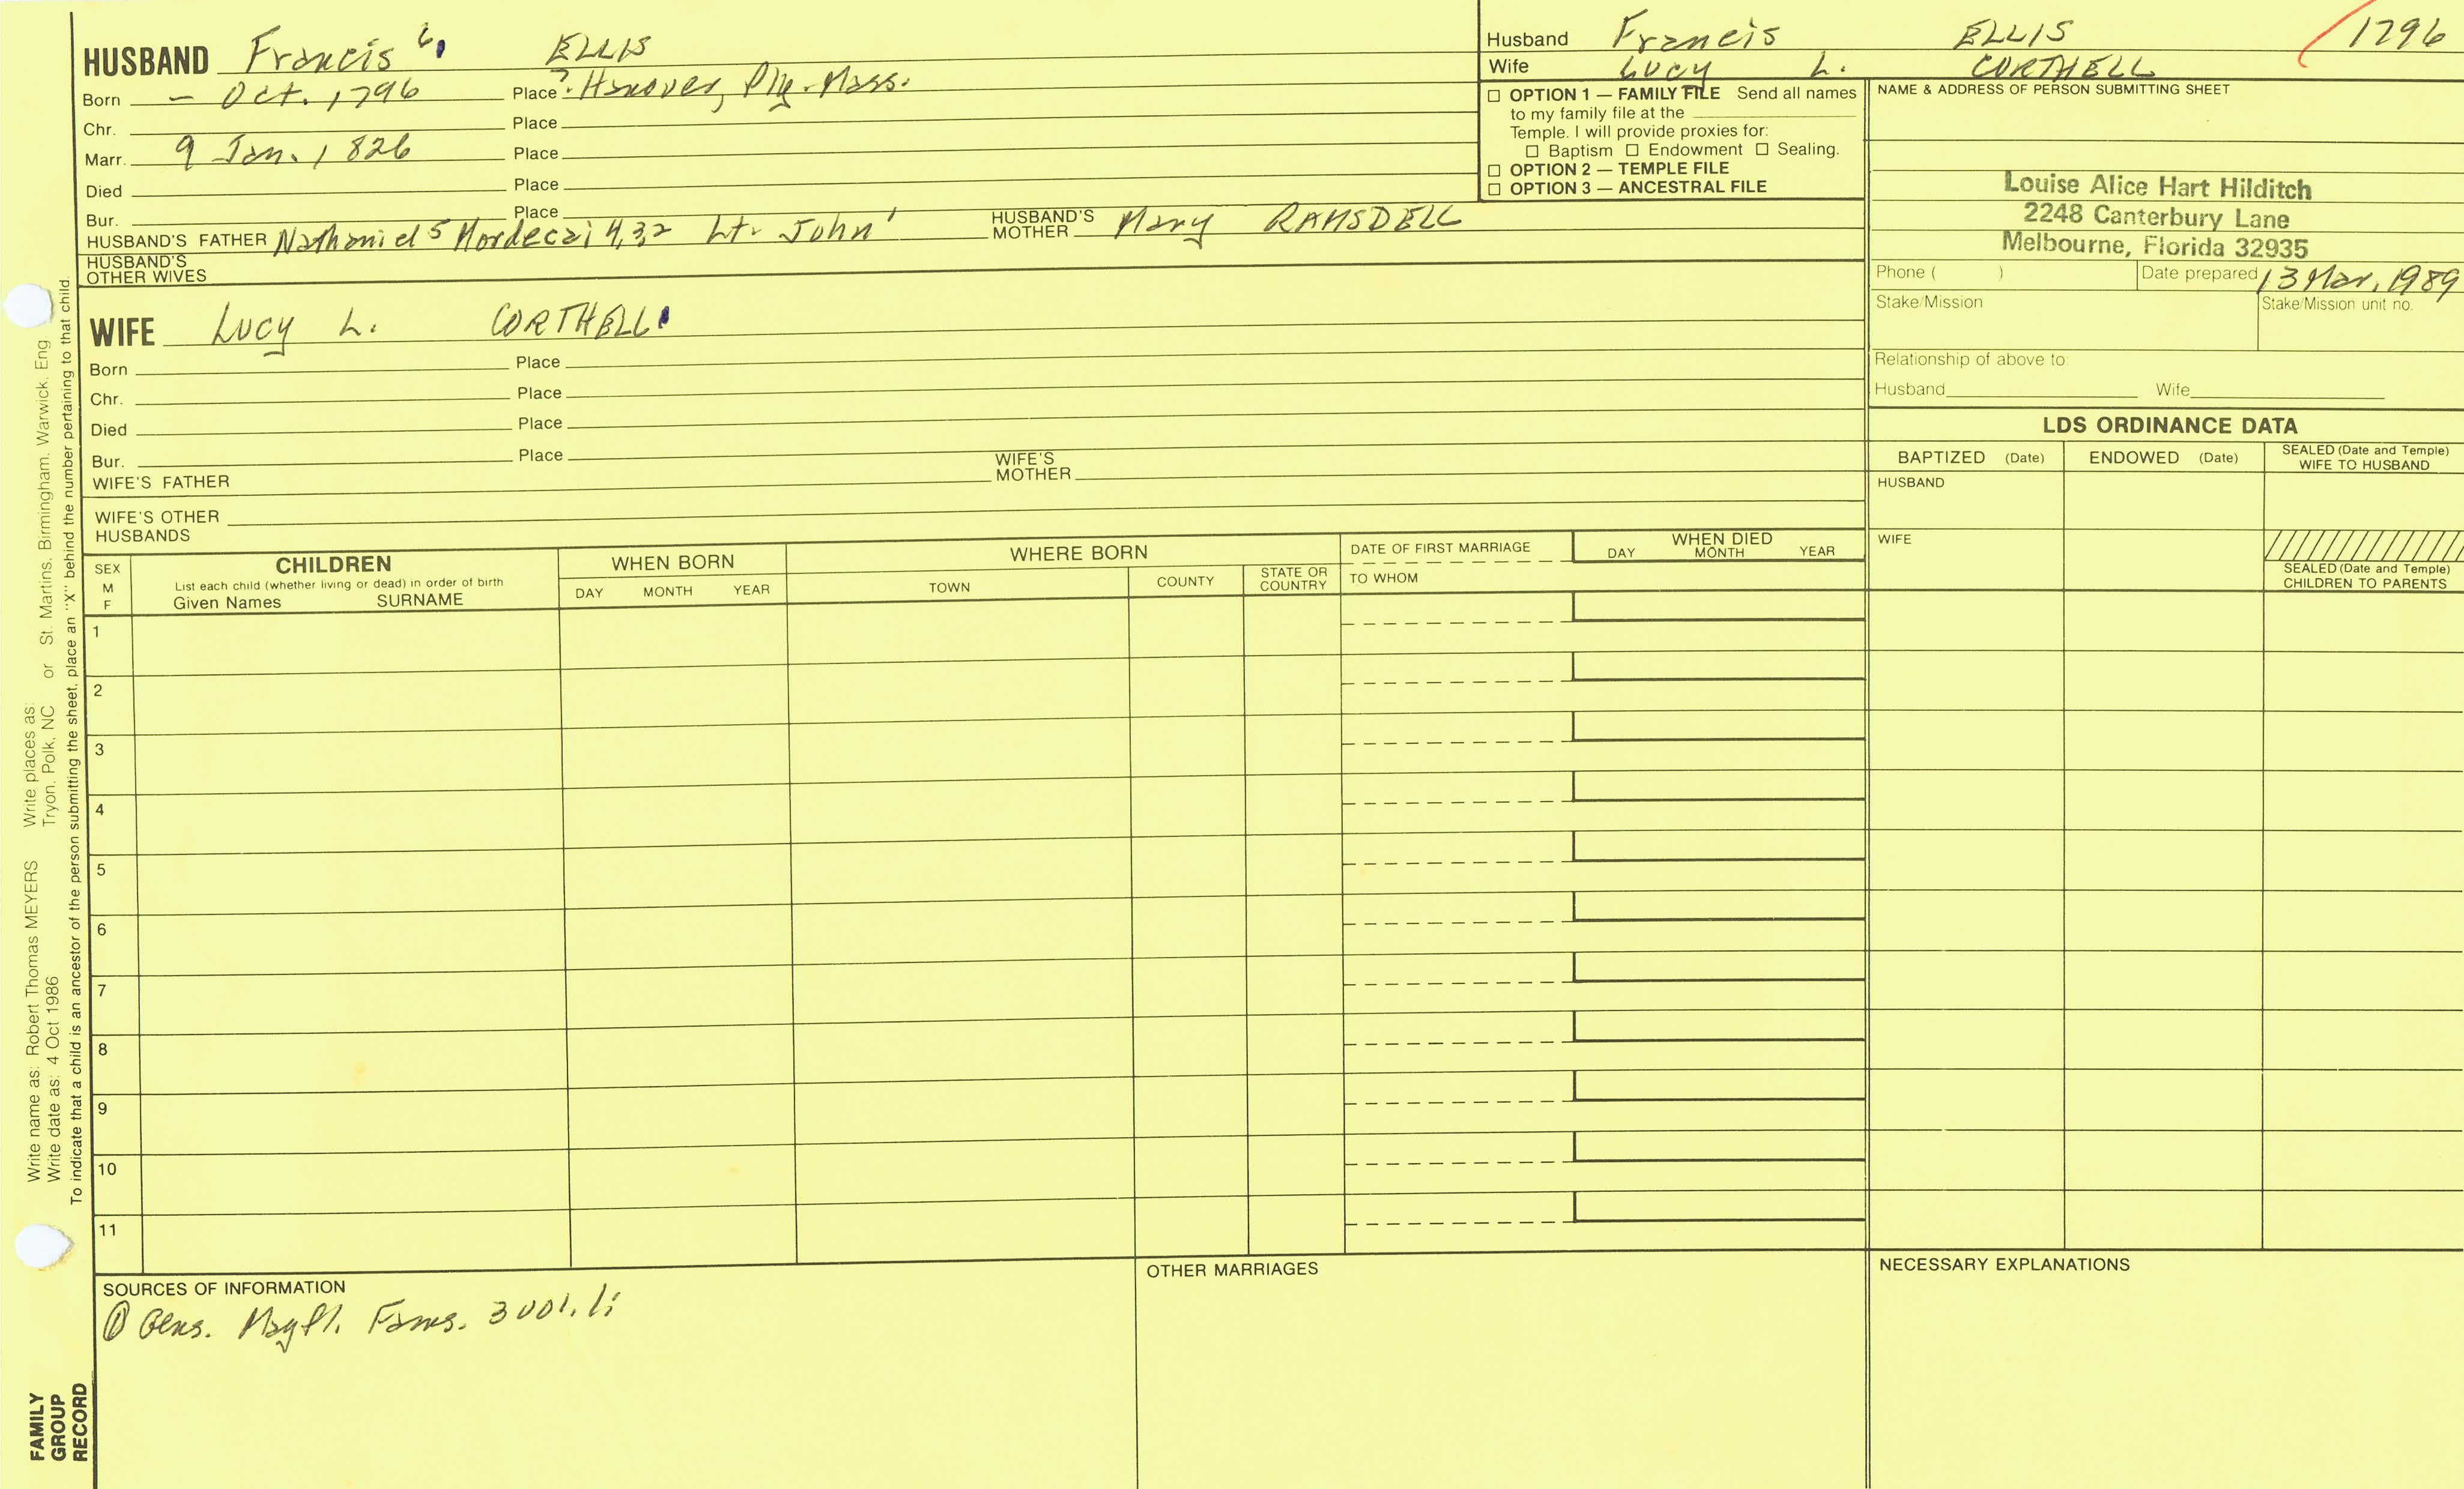 HUSBAND Francis 6 ELLIS
Born - Oct. 1796 Place ? Hanover, Ply. Mass.
Chr. Place
Marr. 9 Jan. 1826 Place
Died Place
Bur. Place
HUSBAND'S FATHER Nathaniel 5 Mordecai 4,3,2 Lt. John 1 HUSBAND'S MOTHER Mary RAMSDELL
HUSBAND'S OTHER WIVES
WIFE Lucy L. CORTHELL
Born Place
Chr. Place
Died Place
Bur. Place
WIFE'S FATHER WIFE'S MOTHER
WIFE'S OTHER HUSBANDS
Husband Francis ELLIS 1796
Wife Lucy L. CORTHELL
☐ OPTION 1 — FAMILY FILE Send all names
to my family file at the
Temple. I will provide proxies for:
☐ Baptism ☐ Endowment ☐ Sealing.
☐ OPTION 2 — TEMPLE FILE
☐ OPTION 3 — ANCESTRAL FILE
NAME & ADDRESS OF PERSON SUBMITTING SHEET
Louise Alice Hart Hilditch
2248 Canterbury Lane
Melbourne, Florida 32935
Phone ( ) Date prepared 13 Mar, 1989
Stake/Mission Stake/Mission unit no.
Relationship of above to:
Husband Wife
LDS ORDINANCE DATA
BAPTIZED (Date) ENDOWED (Date) SEALED (Date and Temple) WIFE TO HUSBAND
HUSBAND
WIFE
SEALED (Date and Temple)
CHILDREN TO PARENTS
SEX
M
F
CHILDREN
List each child (whether living or dead) in order of birth
Given Names SURNAME
WHEN BORN
DAY MONTH YEAR
WHERE BORN
TOWN COUNTY STATE OR COUNTRY
DATE OF FIRST MARRIAGE
TO WHOM
WHEN DIED
DAY MONTH YEAR
1
2
3
4
5
6
7
8
9
10
11
SOURCES OF INFORMATION
① Gens. Mayfl. Fams. 3 vol. li
OTHER MARRIAGES
NECESSARY EXPLANATIONS
Write name as: Robert Thomas MEYERS Write places as:
Write date as: 4 Oct 1986 Tryon, Polk, NC or St. Martins, Birmingham, Warwick, Eng
To indicate that a child is an ancestor of the person submitting the sheet, place an "X" behind the number pertaining to that child.
FAMILY
GROUP
RECORD